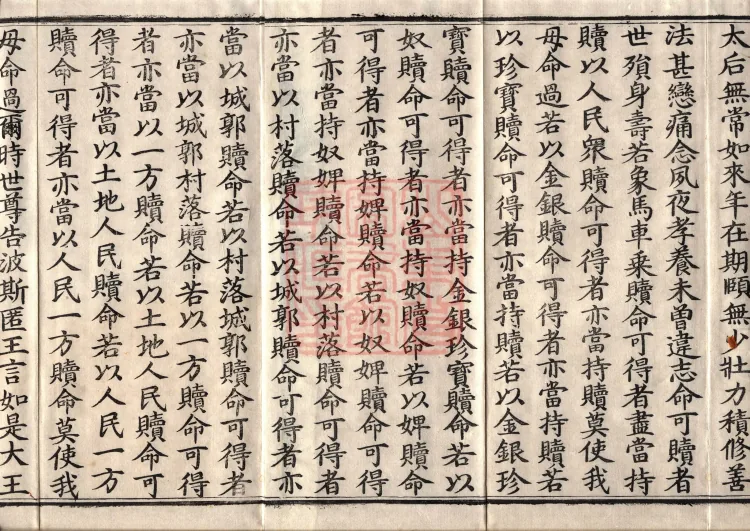 太后無常如來年在期頤無少壯力積修善
法甚戀痛念夙夜孝養未曽違志命可贖者
世殞身壽若象馬車乗贖命可得者盡當持
贖以人民衆贖命可得者亦當持贖莫使我
母命過若以金銀贖命可得者亦當持贖
以珍寶贖命可得者亦當持贖若以金銀珍
寶贖命可得者亦當持金銀珍寶贖命若以
奴贖命可得者亦當持奴贖命若以婢贖命
可得者亦當持婢贖命若以奴婢贖命可得
者亦當持奴婢贖命若以村落贖命可得者
亦當以村落贖命若以城郭贖命可得者亦
當以城郭贖命若以村落城郭贖命可得者
亦當以城郭村落贖命若以一方贖命可得
者亦當以一方贖命若以土地人民贖命可
得者亦當以土地人民贖命若以人民一方
贖命可得者亦當以人民一方贖命莫使我
母命過爾時世尊告波斯匿王言如是大王